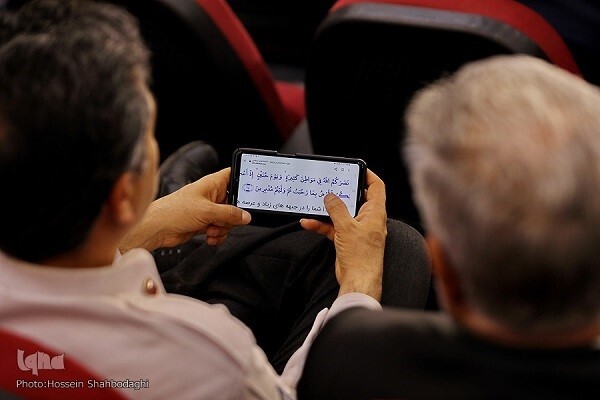 نَصَرَكُمُ اللَّهُ فِي مَوَاطِنَ كَثِيرَةٍ وَيَوْمَ حُنَيْنٍ إِذْ
بِمَا رَحُبَتْ ثُمَّ وَلَّيْتُم مُّدْبِرِينَ
شما را در جبهه های زیاد و عرصه
iqna
Photo:Hossein Shahbodaghi